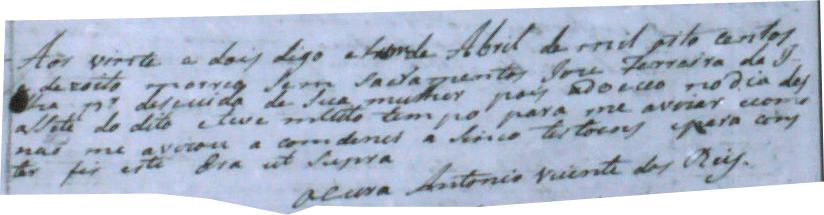 Aos vinte e dois digo e hum de Abril de mil oito centos
e dezoito morreo sem sacramentos Joze Ferreira da
pr descuido de sua mulher pois adoeceo no dia des
assete do dito e teve muito tempo para me avizar e como
nao me avizou a comdenei a sinco tostoens e para cons
tar fis este Era ut supra
O Cura Antonio Vicente dos Reis.